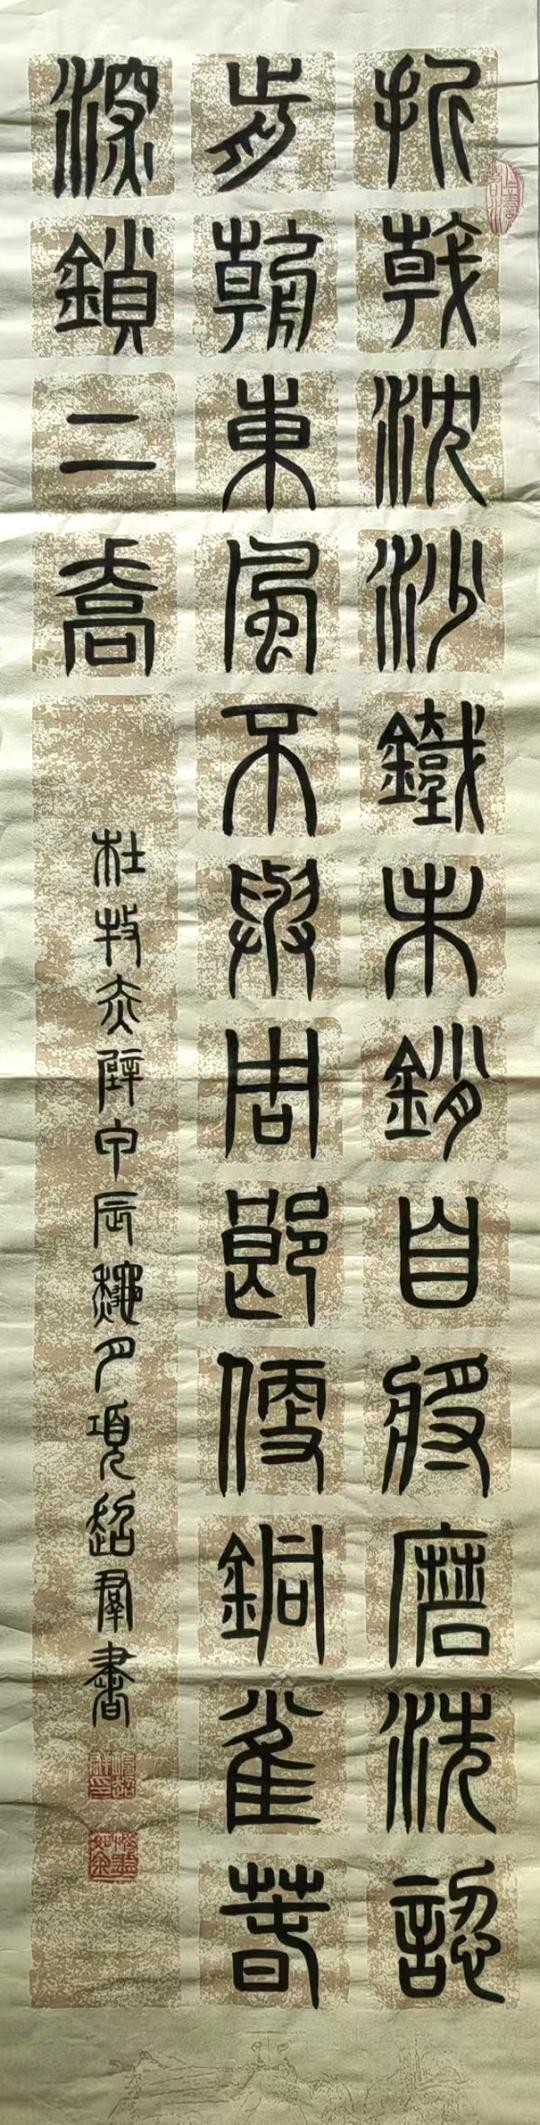 折戟沈沙鐵未銷自將磨洗認
前朝東風不與周郎便銅雀春
深鎖二喬
杜牧赤壁甲辰穐月項超羣書